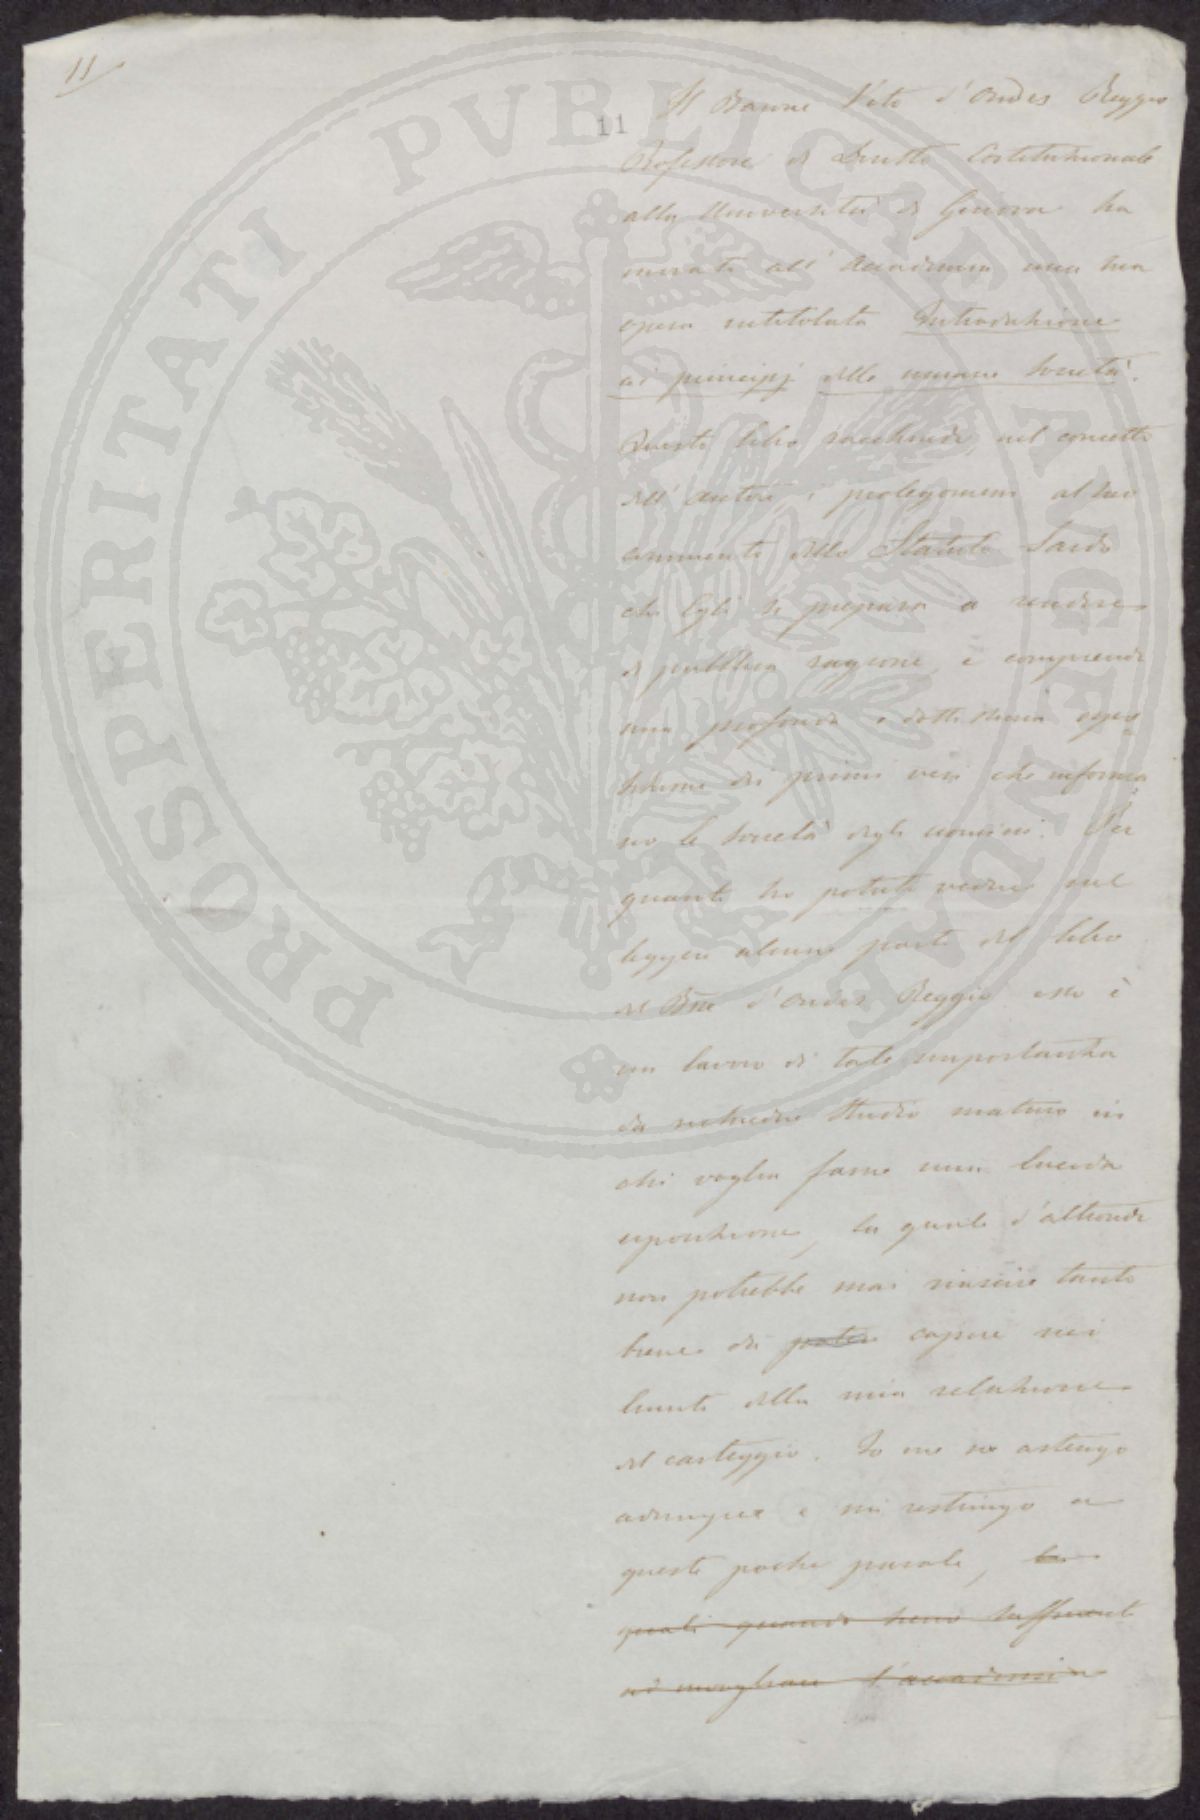 11
11
Il Barone Vito d'Ondes Reggio
Professore di Diritto Costituzionale
alla Università di Genova ha
inviato all'Accademia una sua
opera intitolata Introduzione
ai principj delle umane Società.
Questo libro racchiude, nel concetto
dell'autore, i prolegomeni al suo
commento dello Statuto Sardo
che Egli si prepara a rendere
di pubblica ragione, e comprende
una profonda e dottissima espo
sizione dei primi veri che informa
no le Società degli uomini. Per
quanto ho potuto vedere nel
leggere alcune parti del libro
del Bne d'Ondes Reggio esso è
un lavoro di tale importanza
da richiedere studio maturo in
chi voglia farne una lucida
esposizione, la quale d'altronde
non potrebbe mai riuscire tanto
breve da poter capire nei
limiti della mia relazione
del carteggio. Io me ne astengo
adunque e mi restringo a
queste poche parole, le
quali quando sieno sufficienti
ad invogliare l'accademia
PROSPERITATI PVBLICAE AVGENDAE